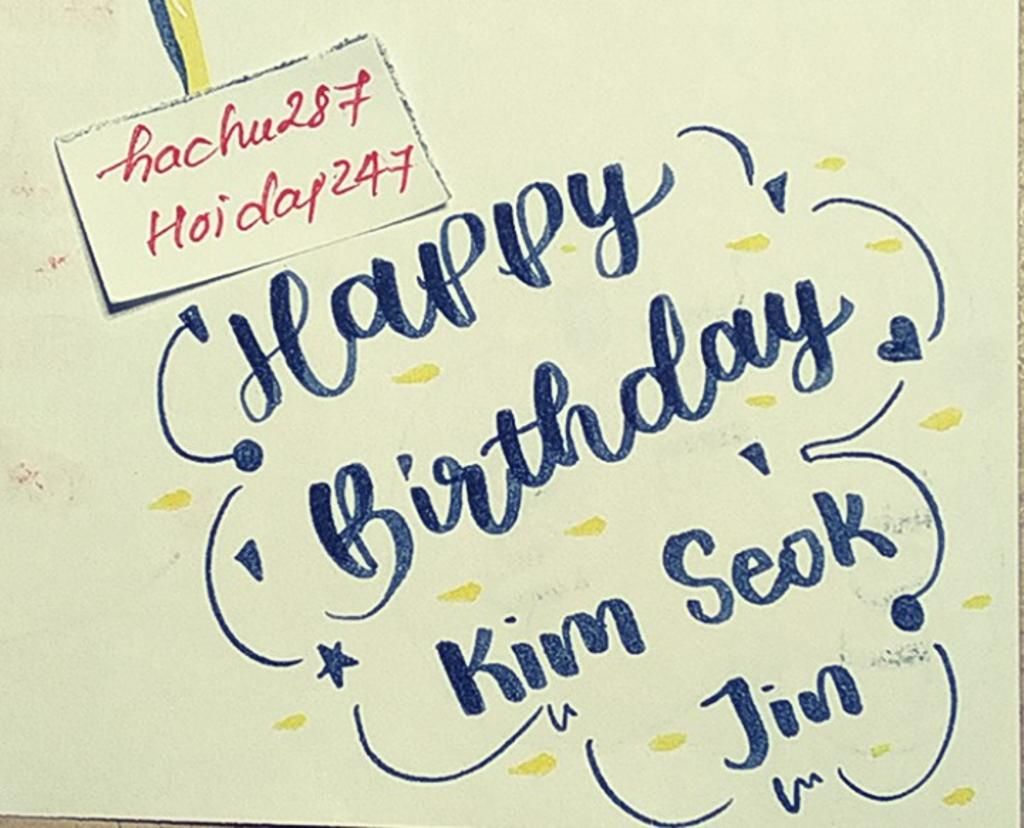 hachu287
Hoidap247
Happy
Birthday
Kim Seok
Jin